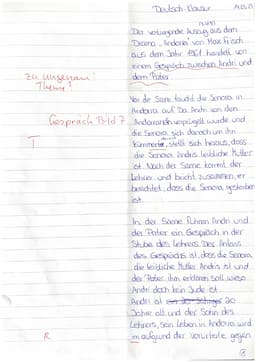 Deutsch-Klausur
Der vorliegende Auszug aus dem
Drama „Andorra" von Max Frisch
aus dem Jahr 1961 handelt von
einem Gespräch zwischen Andri und
dem Pater.
zu ungenau!
Thema?
Gespräch Bild 7
T
Vor der Szene taucht die Senora in
Andorra auf. Da Andri von den
Andorranern verprügelt wurde und
die Senora sich danach um ihn
kümmerte, stellt sich heraus, dass
die Senora Andris leibliche Mutter
ist. Nach der Szene kommt der
Lehrer und bricht zusammen, er
berichtet, dass die Senora gestorben
ist.
In der Szene führen Andri und
der Pater ein Gespräch in der
Stube des Lehrers. Der Anlass
des Gesprächs ist, dass die Senora,
die leibliche Mutter Andris ist und
der Pater ihm erklären soll, wieso
Andri doch kein Jude ist.
Andri ist 20
Jahre alt und der Sohn des
Lehrers, sein Leben in Andorra wird
aufgrund der Vorurteile gegen
R